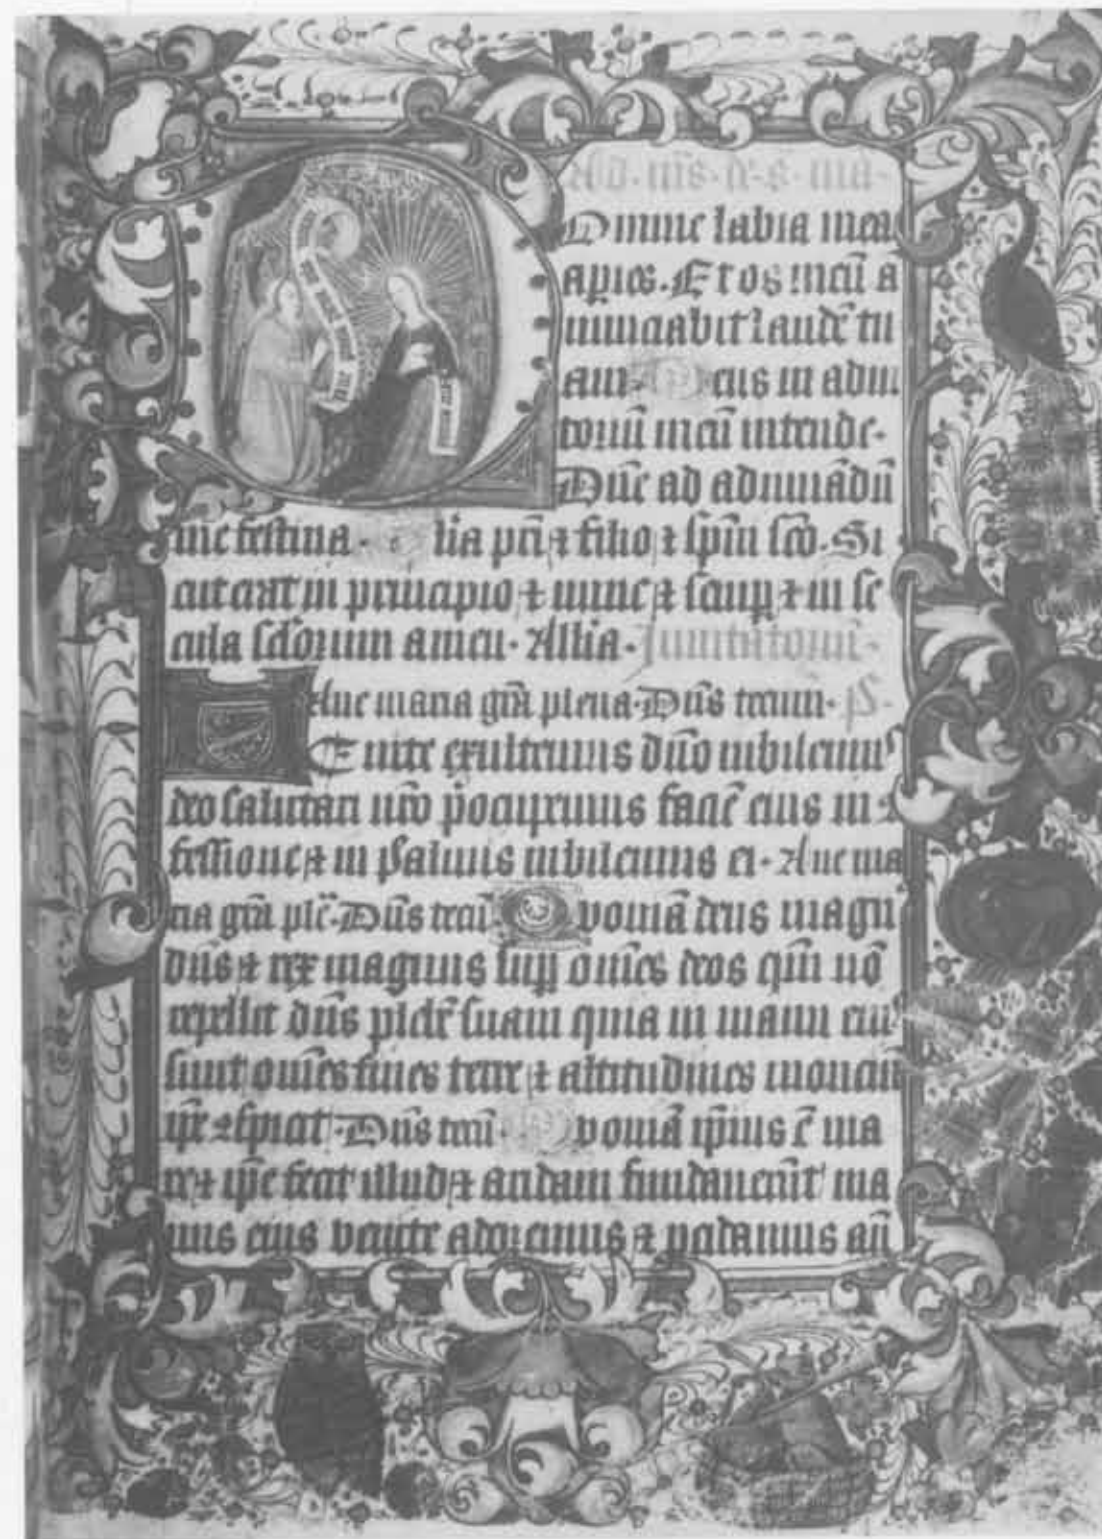 Ad· m̄s· d· s· ma·
Domine labia mea
apies. Et os meū a
nunciabit laudē tu
am. Deus in adiu
toriū meū intende.
Dn̄e ad adiuuādū
me festina. Glia pr̄i ⁊ filio ⁊ spū sc̄o. Si
cut erat in principio ⁊ nunc ⁊ semp ⁊ in se
cula sclorum amen. Allia. Inuitatoriū.
Aue maria gr̄a plena. Dn̄s tecum. ps.
Venite exultemus dn̄o iubilemus
deo salutari nr̄o p̄ocupemus faciē eius in ꝯ
fessione ⁊ in psalmis iubilemus ei. Aue ma
ria gr̄a plē. Dn̄s tecū. Quoniā deus magn'
dn̄s ⁊ rex magnus sup om̄es deos qm̄ nō
repellit dn̄s plebē suam quia in manu eiu'
sunt om̄es fines terre ⁊ altitudines monciū
ip̄e ꝯspicit. Dn̄s tecū. Quoniā ip̄ius ē ma
re ⁊ ip̄e fecit illud ⁊ aridam fundauerūt ma
nus eius venite adoremus ⁊ pcidamus an̄